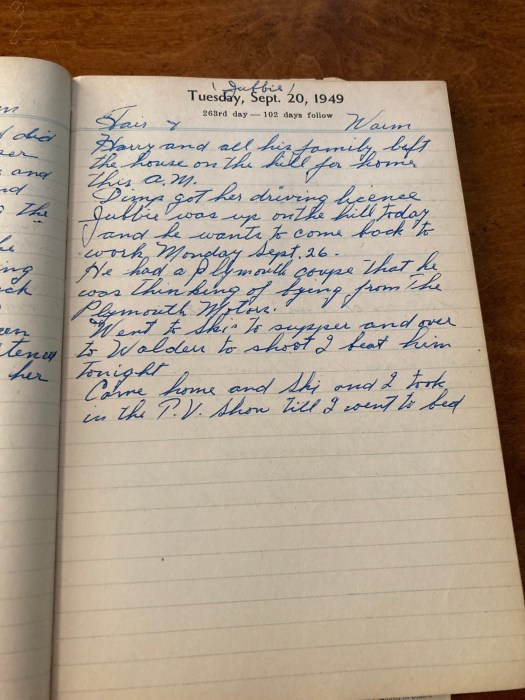 m
(Jubbie)
Tuesday, Sept. 20, 1949
263rd day — 102 days follow
Fair & Warm
Harry and all his family left
the house on the hill for home
this A.M.
Dimp got her driving licence
Jubbie was up on the hill today
and he wants to come back to
work Monday Sept. 26.
He had a Plymouth coupe that he
was thinking of bying from the
Plymouth Motors.
Went to Ski's to supper and over
to Walden to shoot I beat him
tonight
Came home and Ski and I took
in the T.V. show till I went to bed
did
and
the
he
ing
her